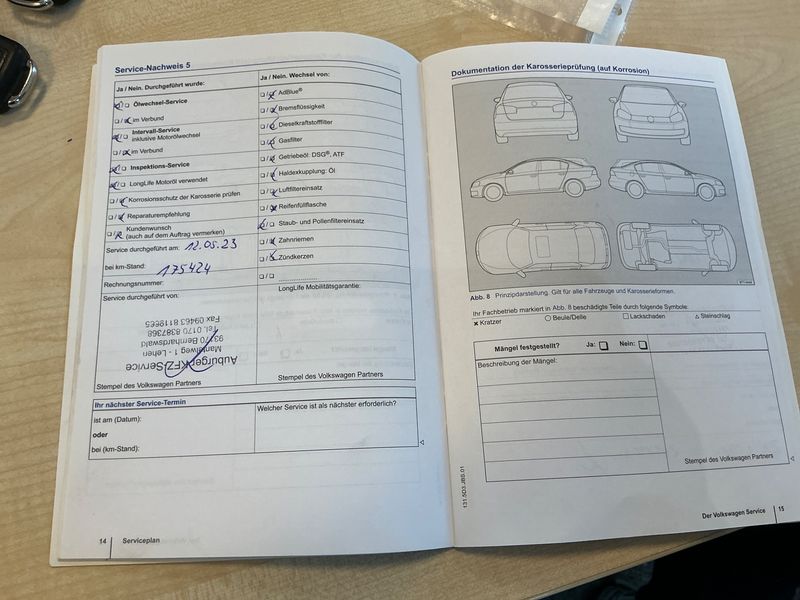 Service-Nachweis 5
Ja / Nein. Durchgeführt wurde:
Ölwechsel-Service
im Verbund
Intervall-Service
inklusive Motorölwechsel
im Verbund
Inspektions-Service
LongLife Motoröl verwendet
Korrosionsschutz der Karosserie prüfen
Reparaturempfehlung
Kundenwunsch
(auch auf dem Auftrag vermerken)
Service durchgeführt am: 12.05.23
bei km-Stand: 175424
Rechnungsnummer:
Service durchgeführt von:
Auburger KFZ-Service
Mantelweg 1 - Lehen
93170 Bernhardswald
Tel. 0170 8387368
Fax 09463 8119665
Stempel des Volkswagen Partners
Ja / Nein. Wechsel von:
AdBlue®
Bremsflüssigkeit
Dieselkraftstofffilter
Gasfilter
Getriebeöl: DSG®, ATF
Haldexkupplung: Öl
Luftfiltereinsatz
Reifenfüllflasche
Staub- und Pollenfiltereinsatz
Zahnriemen
Zündkerzen
LongLife Mobilitätsgarantie:
Stempel des Volkswagen Partners
Ihr nächster Service-Termin
ist am (Datum):
oder
bei (km-Stand):
Welcher Service ist als nächster erforderlich?
14 Serviceplan
Dokumentation der Karosserieprüfung (auf Korrosion)
Abb. 8 Prinzipdarstellung. Gilt für alle Fahrzeuge und Karosserieformen.
Ihr Fachbetrieb markiert in Abb. 8 beschädigte Teile durch folgende Symbole:
x Kratzer ○ Beule/Delle □ Lackschaden △ Steinschlag
Mängel festgestellt? Ja: Nein:
Beschreibung der Mängel:
Stempel des Volkswagen Partners
131.5D3.JBS.01
Der Volkswagen Service 15